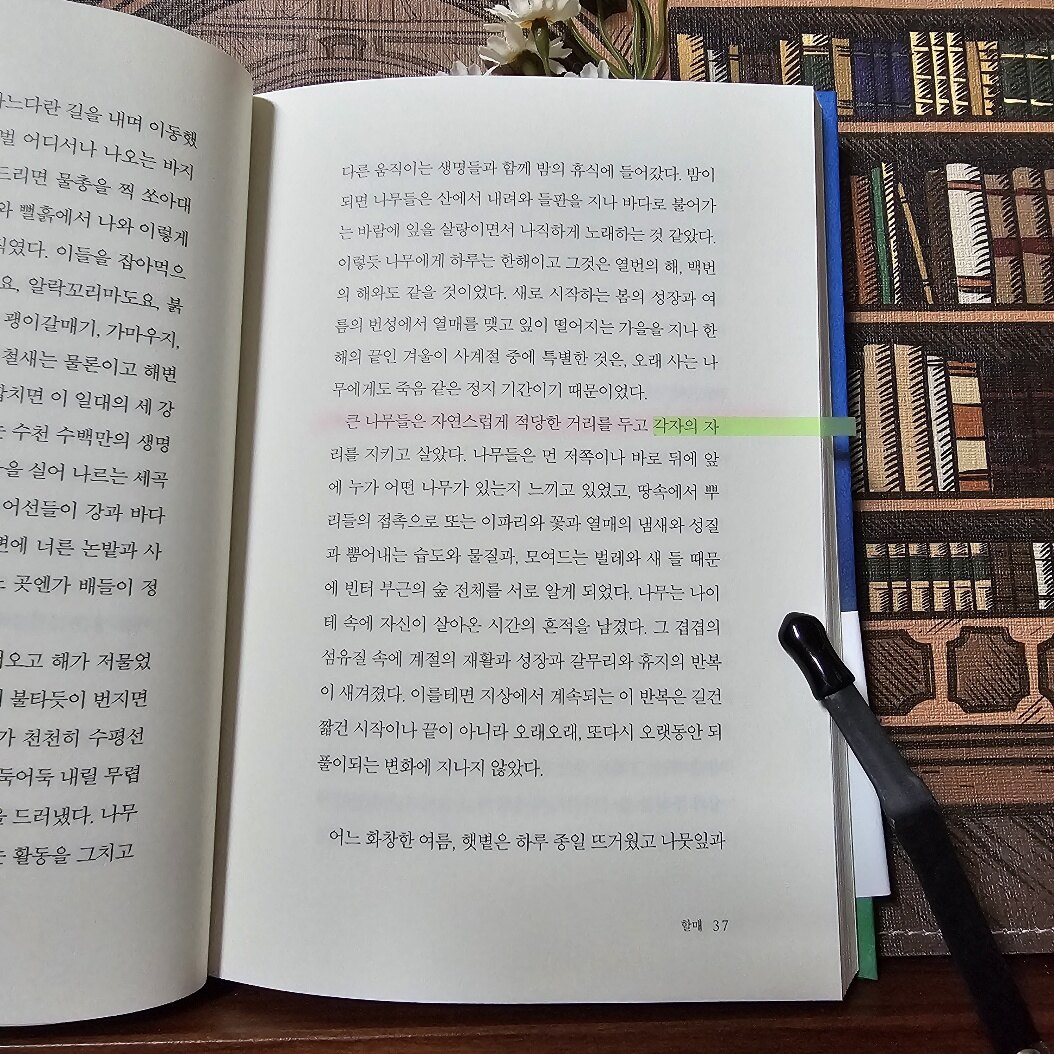 느다란 길을 내며 이동했
벌 어디서나 나오는 바지
드리면 물총을 찍 쏘아대
와 뻘흙에서 나와 이렇게
이들을 잡아먹으
요, 알락꼬리마도요, 붉
괭이갈매기, 가마우지,
철새는 물론이고 해변
합치면 이 일대의 세 강
수천 수백만의 생명
을 실어 나르는 세곡
어선들이 강과 바다
면에 너른 논밭과 사
곳엔가 배들이 정
해가 저물었
불타듯이 번지면
가 천천히 수평선
둑어둑 내릴 무렵
드러냈다. 나무
활동을 그치고
다른 움직이는 생명들과 함께 밤의 휴식에 들어갔다. 밤이
되면 나무들은 산에서 내려와 들판을 지나 바다로 불어가
는 바람에 잎을 살랑이면서 나직하게 노래하는 것 같았다.
이렇듯 나무에게 하루는 한해이고 그것은 열번의 해, 백번
의 해와도 같을 것이었다. 새로 시작하는 봄의 성장과 여
름의 번성에서 열매를 맺고 잎이 떨어지는 가을을 지나 한
해의 끝인 겨울이 사계절 중에 특별한 것은, 오래 사는 나
무에게도 죽음 같은 정지 기간이기 때문이었다.
큰 나무들은 자연스럽게 적당한 거리를 두고 각자의 자
리를 지키고 살았다. 나무들은 먼 저쪽이나 바로 뒤에 앞
에 누가 어떤 나무가 있는지 느끼고 있었고, 땅속에서 뿌
리들의 접촉으로 또는 이파리와 꽃과 열매의 냄새와 성질
과 뿜어내는 습도와 물질과, 모여드는 벌레와 새 들 때문
에 빈터 부근의 숲 전체를 서로 알게 되었다. 나무는 나이
테 속에 자신이 살아온 시간의 흔적을 남겼다. 그 겹겹의
섬유질 속에 계절의 재활과 성장과 갈무리와 휴지의 반복
이 새겨졌다. 이를테면 지상에서 계속되는 이 반복은 길건
짧건 시작이나 끝이 아니라 오래오래, 또다시 오랫동안 되
풀이되는 변화에 지나지 않았다.
어느 화창한 여름, 햇볕은 하루 종일 뜨거웠고 나뭇잎과
할매 37